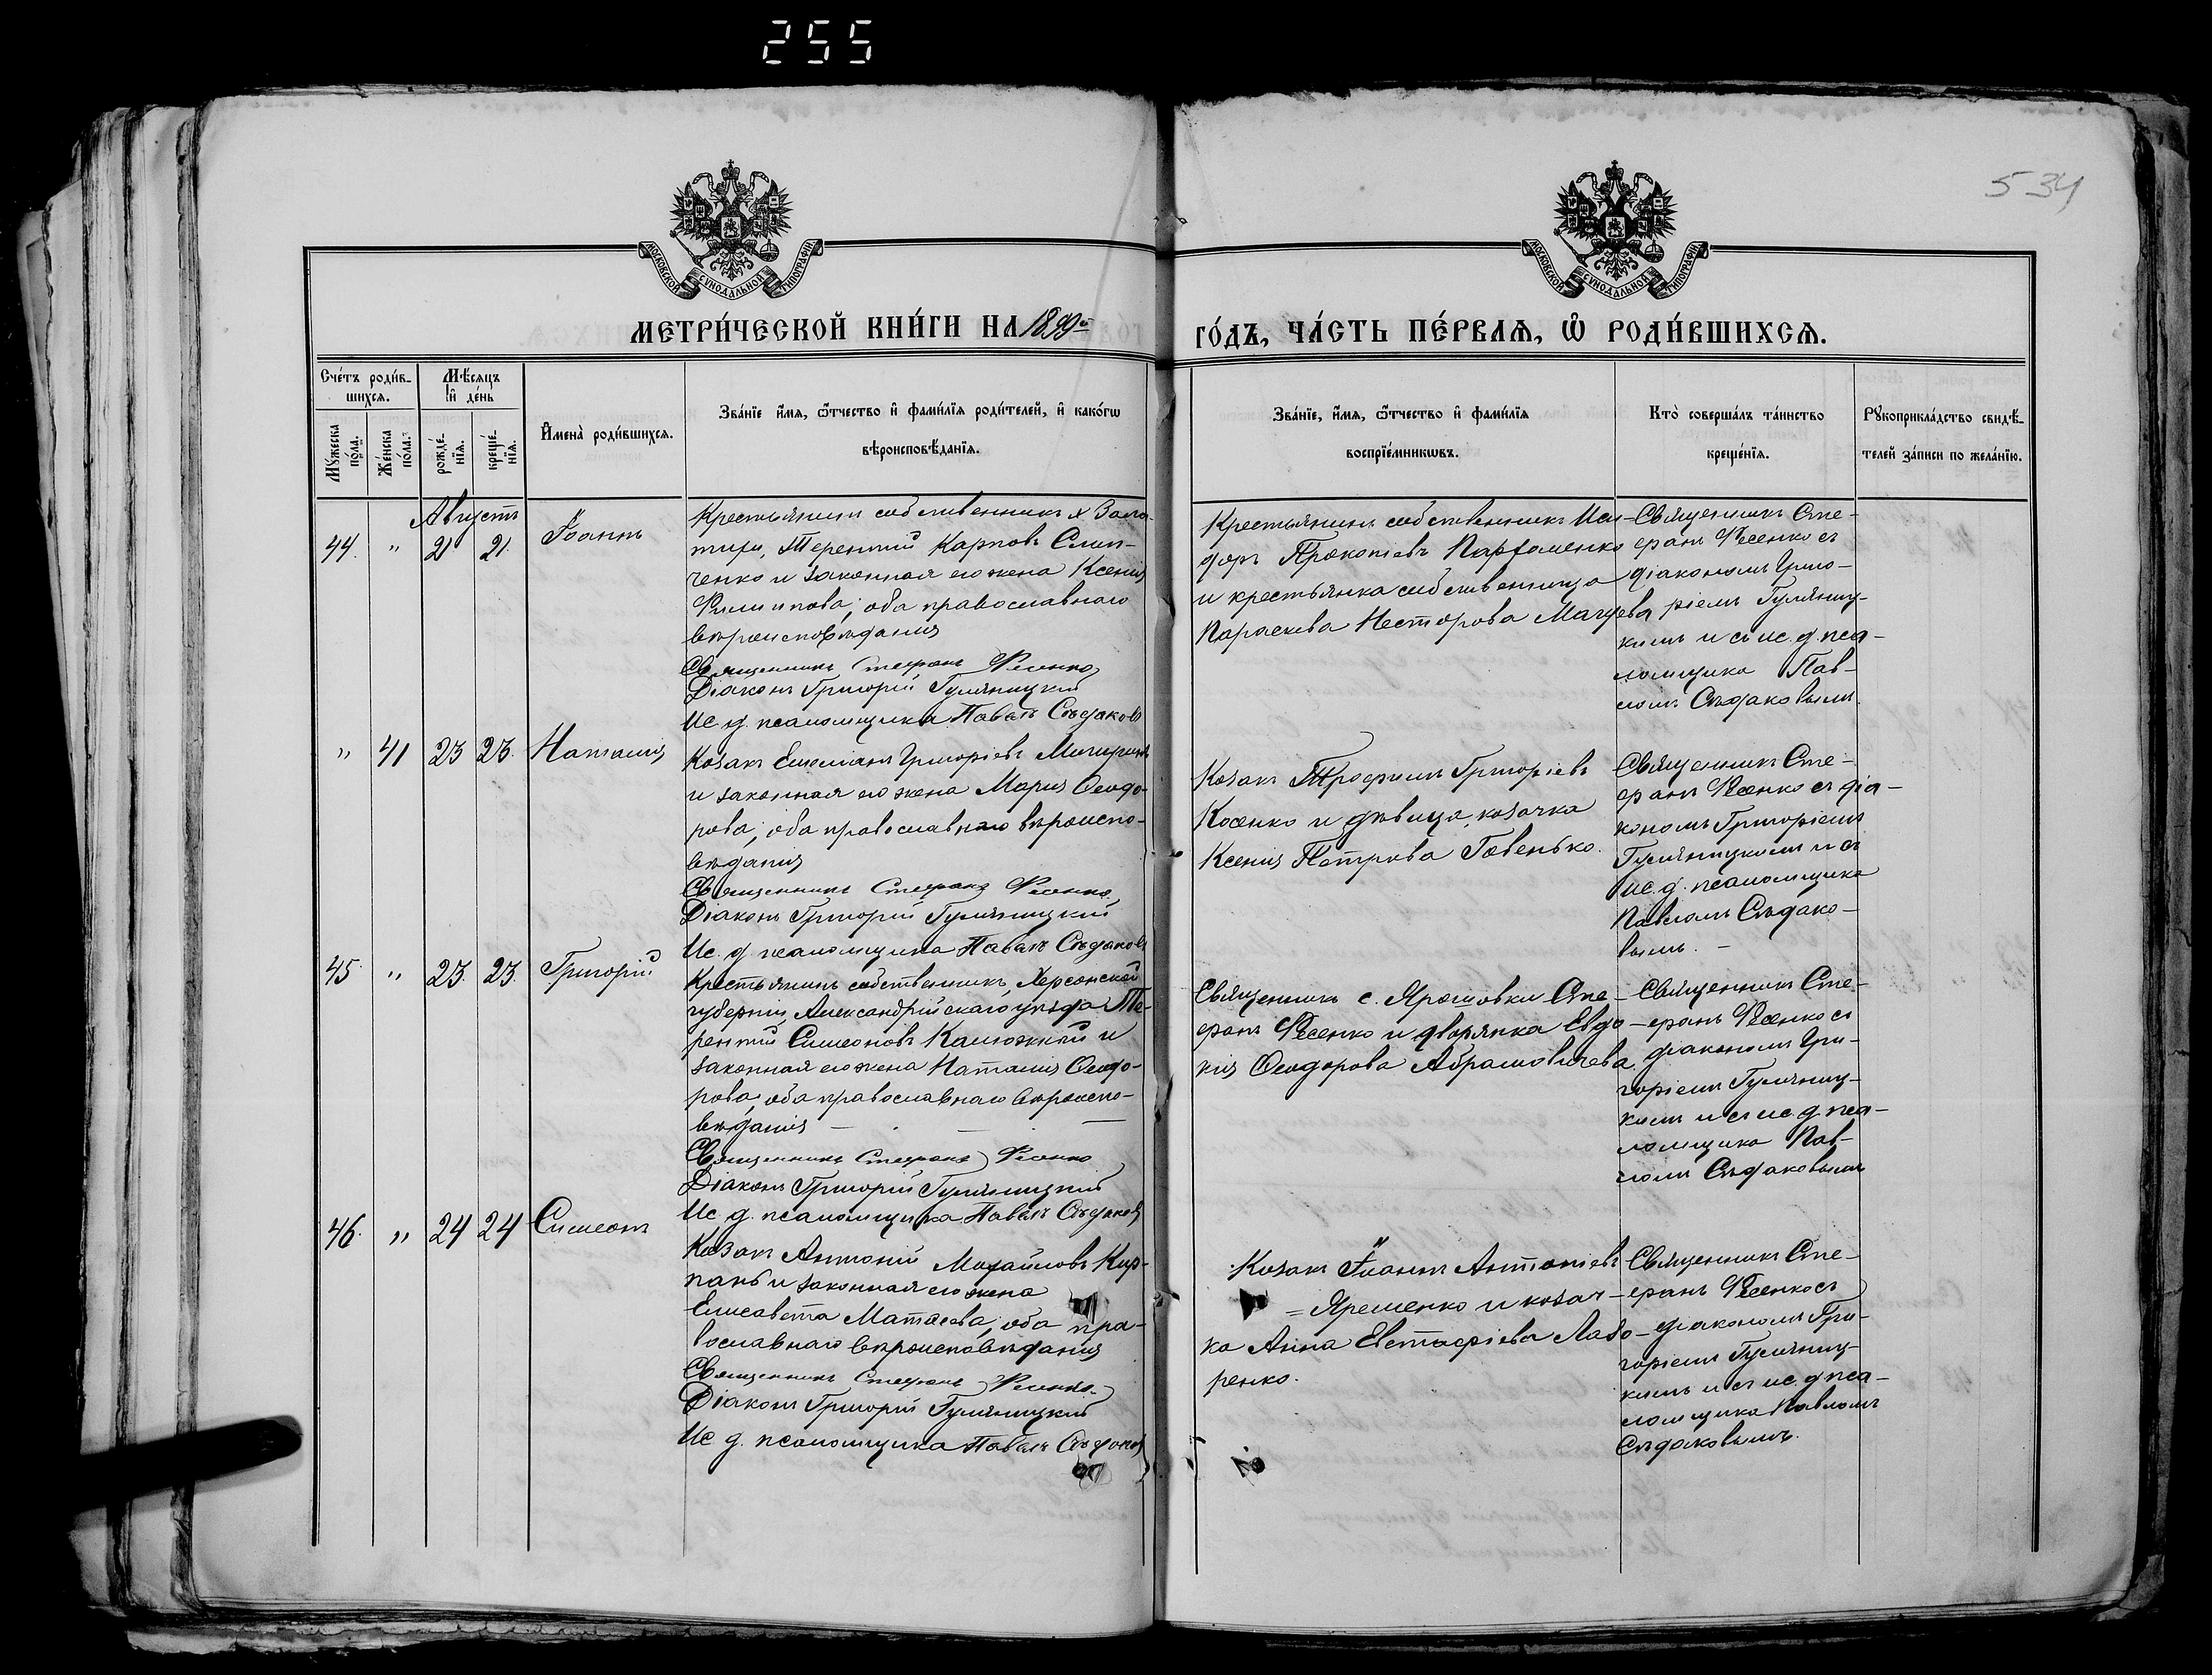 255
534
МОСКОВСКОЙ СѴНОДАЛЬНОЙ ТИПОГРАФІИ
МОСКОВСКОЙ СѴНОДАЛЬНОЙ ТИПОГРАФІИ
МЕТРИ́ЧЕСКОЙ КНИ́ГИ НА 1899й
ГО́ДЪ, ЧА́СТЬ ПЕ́РВАѦ, Ѡ҆ РОДИ́ВШИХСѦ.
Сче́тъ роди́в-
шихсѧ.
Мѣ́сѧцъ
и҆ де́нь
Мꙋ́жеска по́ла.
Же́нска по́ла.
рожде́-нїѧ.
креще́-нїѧ.
И҆мена̀ роди́вшихсѧ.
Зва́нїе и҆́мѧ, ѻ҆́тчество и҆ фами́лїѧ роди́телей, и҆ како́гѡ
вѣроисповѣ́данїѧ.
Зва́нїе, и҆́мѧ, ѻ҆́тчество и҆ фами́лїѧ
воспрїе́мникѡвъ.
Кто̀ соверша́лъ та́инство
креще́нїѧ.
Рꙋкоприкла́дство свидѣ́-
телей за́писи по жела́нїю.
Августъ
44. " 21 21. Іоаннъ
Крестьянинъ собственникъ х
Терентій Карповъ Слип-
ченко и законная его жена Ксенія
Филипова, оба православнаго
вѣроисповѣданія
Священникъ Стефанъ Фесенко
Діаконъ Григорій Гуляницкій
Ис. д. псаломщика Павелъ Сѣдаковъ
Крестьянинъ собственникъ Иси-
доръ Прокопіевъ Парфоменко
и крестьянка собственница
Параскева Несторова Мацѣева
Священникъ Сте-
фанъ Фесенко съ
діакономъ Григо-
ріемъ Гуляниц-
кимъ и съ ис. д. пса-
ломщика Пав-
ломъ Сѣдаковымъ
" 41 23 23. Наталія
Козакъ Емеліанъ Григоріевъ
и законная его жена Марія Ѳеодо-
рова, оба православнаго вѣроиспо-
вѣданія
Священникъ Стефанъ Фесенко
Діаконъ Григорій Гуляницкій
Ис. д. псаломщика Павелъ Сѣдаковъ
Козакъ Трофимъ Григоріевъ
Косенко и дѣвица, козачка
Ксенія Петрова Говенько.
Священникъ Сте-
фанъ Фесенко съ діа-
кономъ Григоріемъ
Гуляницкимъ и съ
ис. д. псаломщика
Павломъ Сѣдако-
вымъ. -
45. " 23. 23. Григорій
Крестьянинъ собственникъ, Херсонской
губерніи, Александрійскаго уѣзда Те-
рентій Симеоновъ Калюжный и
законная его жена Наталія Ѳеодо-
рова, оба православнаго вѣроиспо-
вѣданія
Священникъ Стефанъ Фесенко
Діаконъ Григорій Гуляницкій
Ис. д. псаломщика Павелъ Сѣдаковъ
Священникъ с. Ярошовки Сте-
фанъ Фесенко и дворянка Евдо-
кія Ѳеодорова Абрамовичева.
Священникъ Сте-
фанъ Фесенко съ
діакономъ Гри-
горіемъ Гуляниц-
кимъ и съ ис. д. пса-
ломщика Пав-
ломъ Сѣдаковымъ
46. " 24 24 Симеонъ
Козакъ Антоній Михайловъ Кир-
пань и законная его жена
Елисавета Матѳеева, оба пра-
вославнаго вѣроисповѣданія
Священникъ Стефанъ Фесенко
Діаконъ Григорій Гуляницкій
Ис. д. псаломщика Павелъ Сѣдаковъ
Козакъ Іоаннъ Антоніевъ
= Яременко и козач-
ка Анна Евстафіева Лаза-
ренко.
Священникъ Сте-
фанъ Фесенко съ
діакономъ Гри-
горіемъ Гуляниц-
кимъ и съ ис. д. пса-
ломщика Павломъ
Сѣдаковымъ.